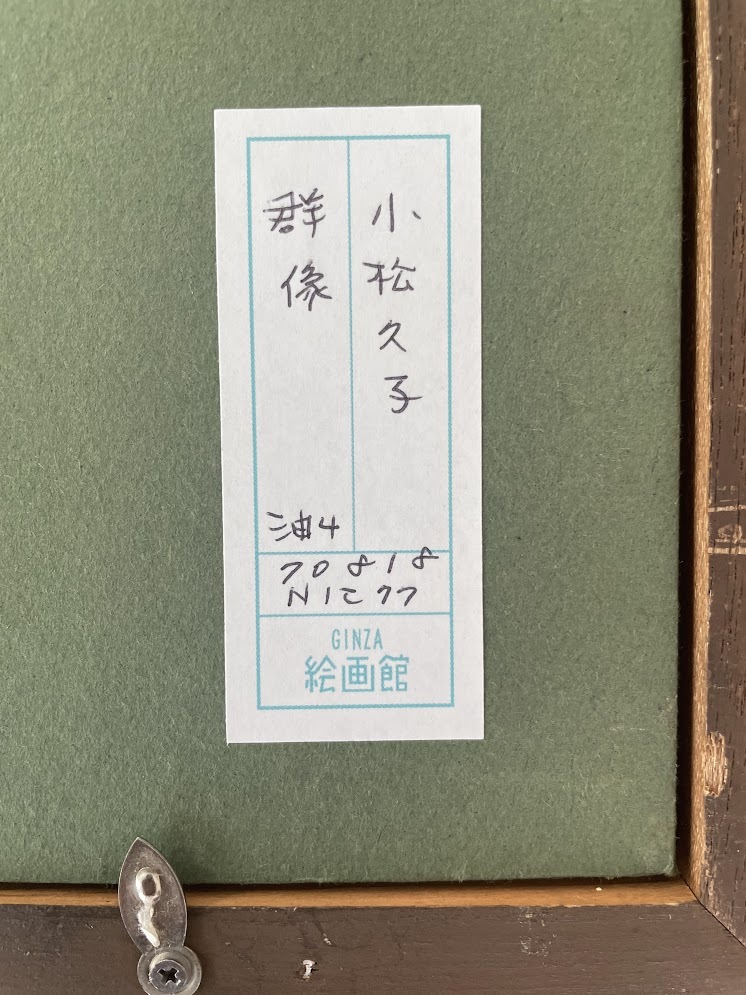 小松久子
群像
油4
70818
N1277
GINZA
絵画館